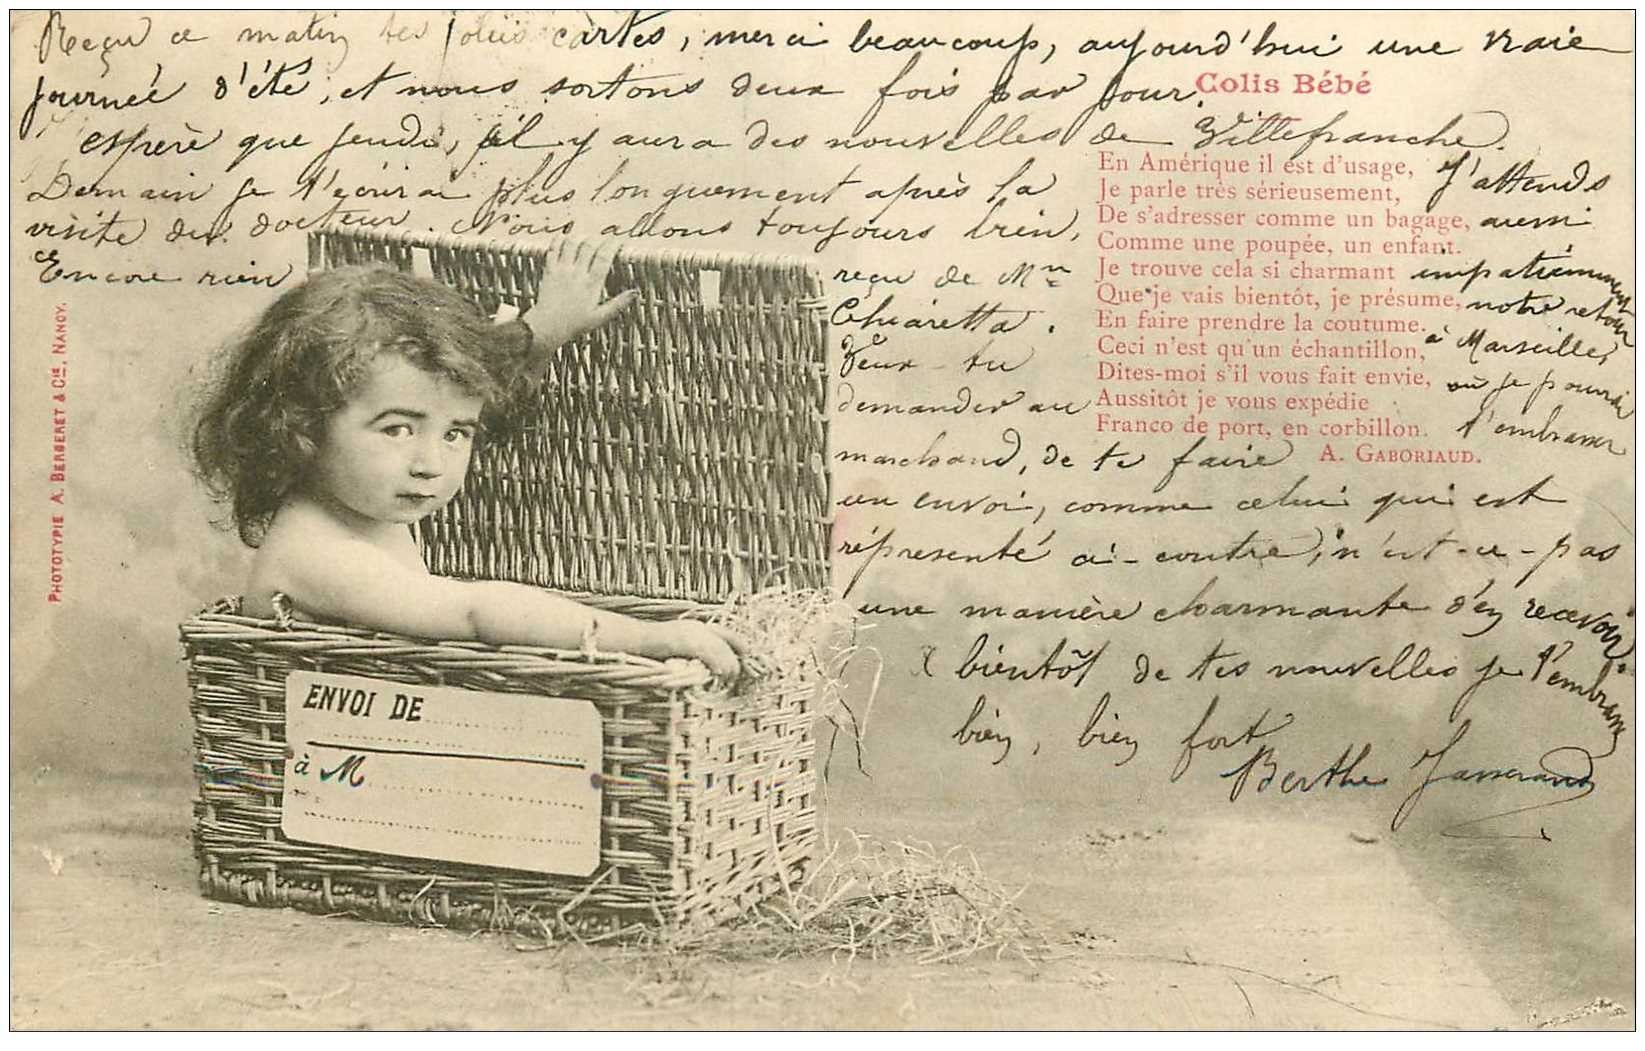 Reçu ce matin tes jolies cartes, merci beaucoup, aujourd'hui une vraie
journée d'été, et nous sortons deux fois par jour.
espère que jeudi, il y aura des nouvelles de Villefranche.
Demain je t'écrirai plus longuement après la
visite du docteur. Nous allons toujours bien,
Encore rien reçu de Mme
Chiaretta.
Veux-tu
demander au
marchand, de te faire
un envoi, comme celui qui est
réprésenté ci-contre, n'est-ce-pas
une manière charmante d'en recevoir.
à bientôt de tes nouvelles je t'embrasse
bien, bien fort
Berthe Jasserand
J'attends
aussi
impatiemment
notre retour
à Marseille,
où je pourrai
t'embrasser
Colis Bébé
En Amérique il est d'usage,
Je parle très sérieusement,
De s'adresser comme un bagage,
Comme une poupée, un enfant.
Je trouve cela si charmant
Que je vais bientôt, je présume,
En faire prendre la coutume.
Ceci n'est qu'un échantillon,
Dites-moi s'il vous fait envie,
Aussitôt je vous expédie
Franco de port, en corbillon.
A. GABORIAUD.
ENVOI DE
à M
PHOTOTYPIE A. BERGERET & CIE, NANCY.